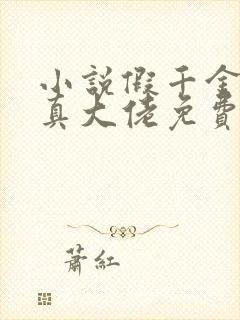 小說假千金
真大佬免費
蕭紅